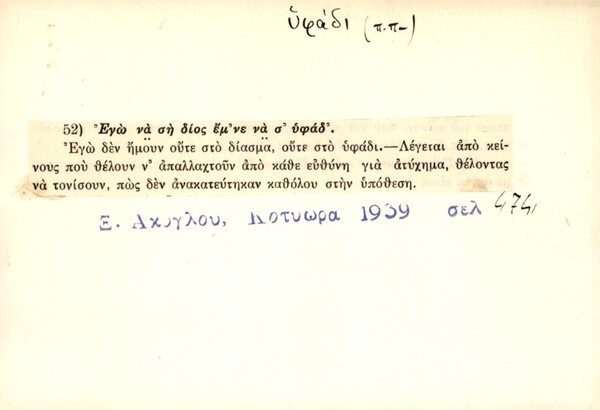 ὑφάδι (π.π-)
52) Ἐγὼ νὰ̤ σὴ δίος ἔμ'νε νὰ̤ σ' ὑφάδ'.
Ἐγὼ δὲν ἤμουν οὔτε στὸ δίασμα, οὔτε στὸ ὑφάδι.—Λέγεται ἀπὸ κεί-
νους ποὺ θέλουν ν' ἀπαλλαχτοῦν ἀπὸ κάθε εὐθύνη γιὰ ἀτύχημα, θέλοντας
νὰ τονίσουν, πὼς δὲν ἀνακατεύτηκαν καθόλου στὴν ὑπόθεση.
Ξ. Ακογλου, Κοτυωρα 1939 σελ 474